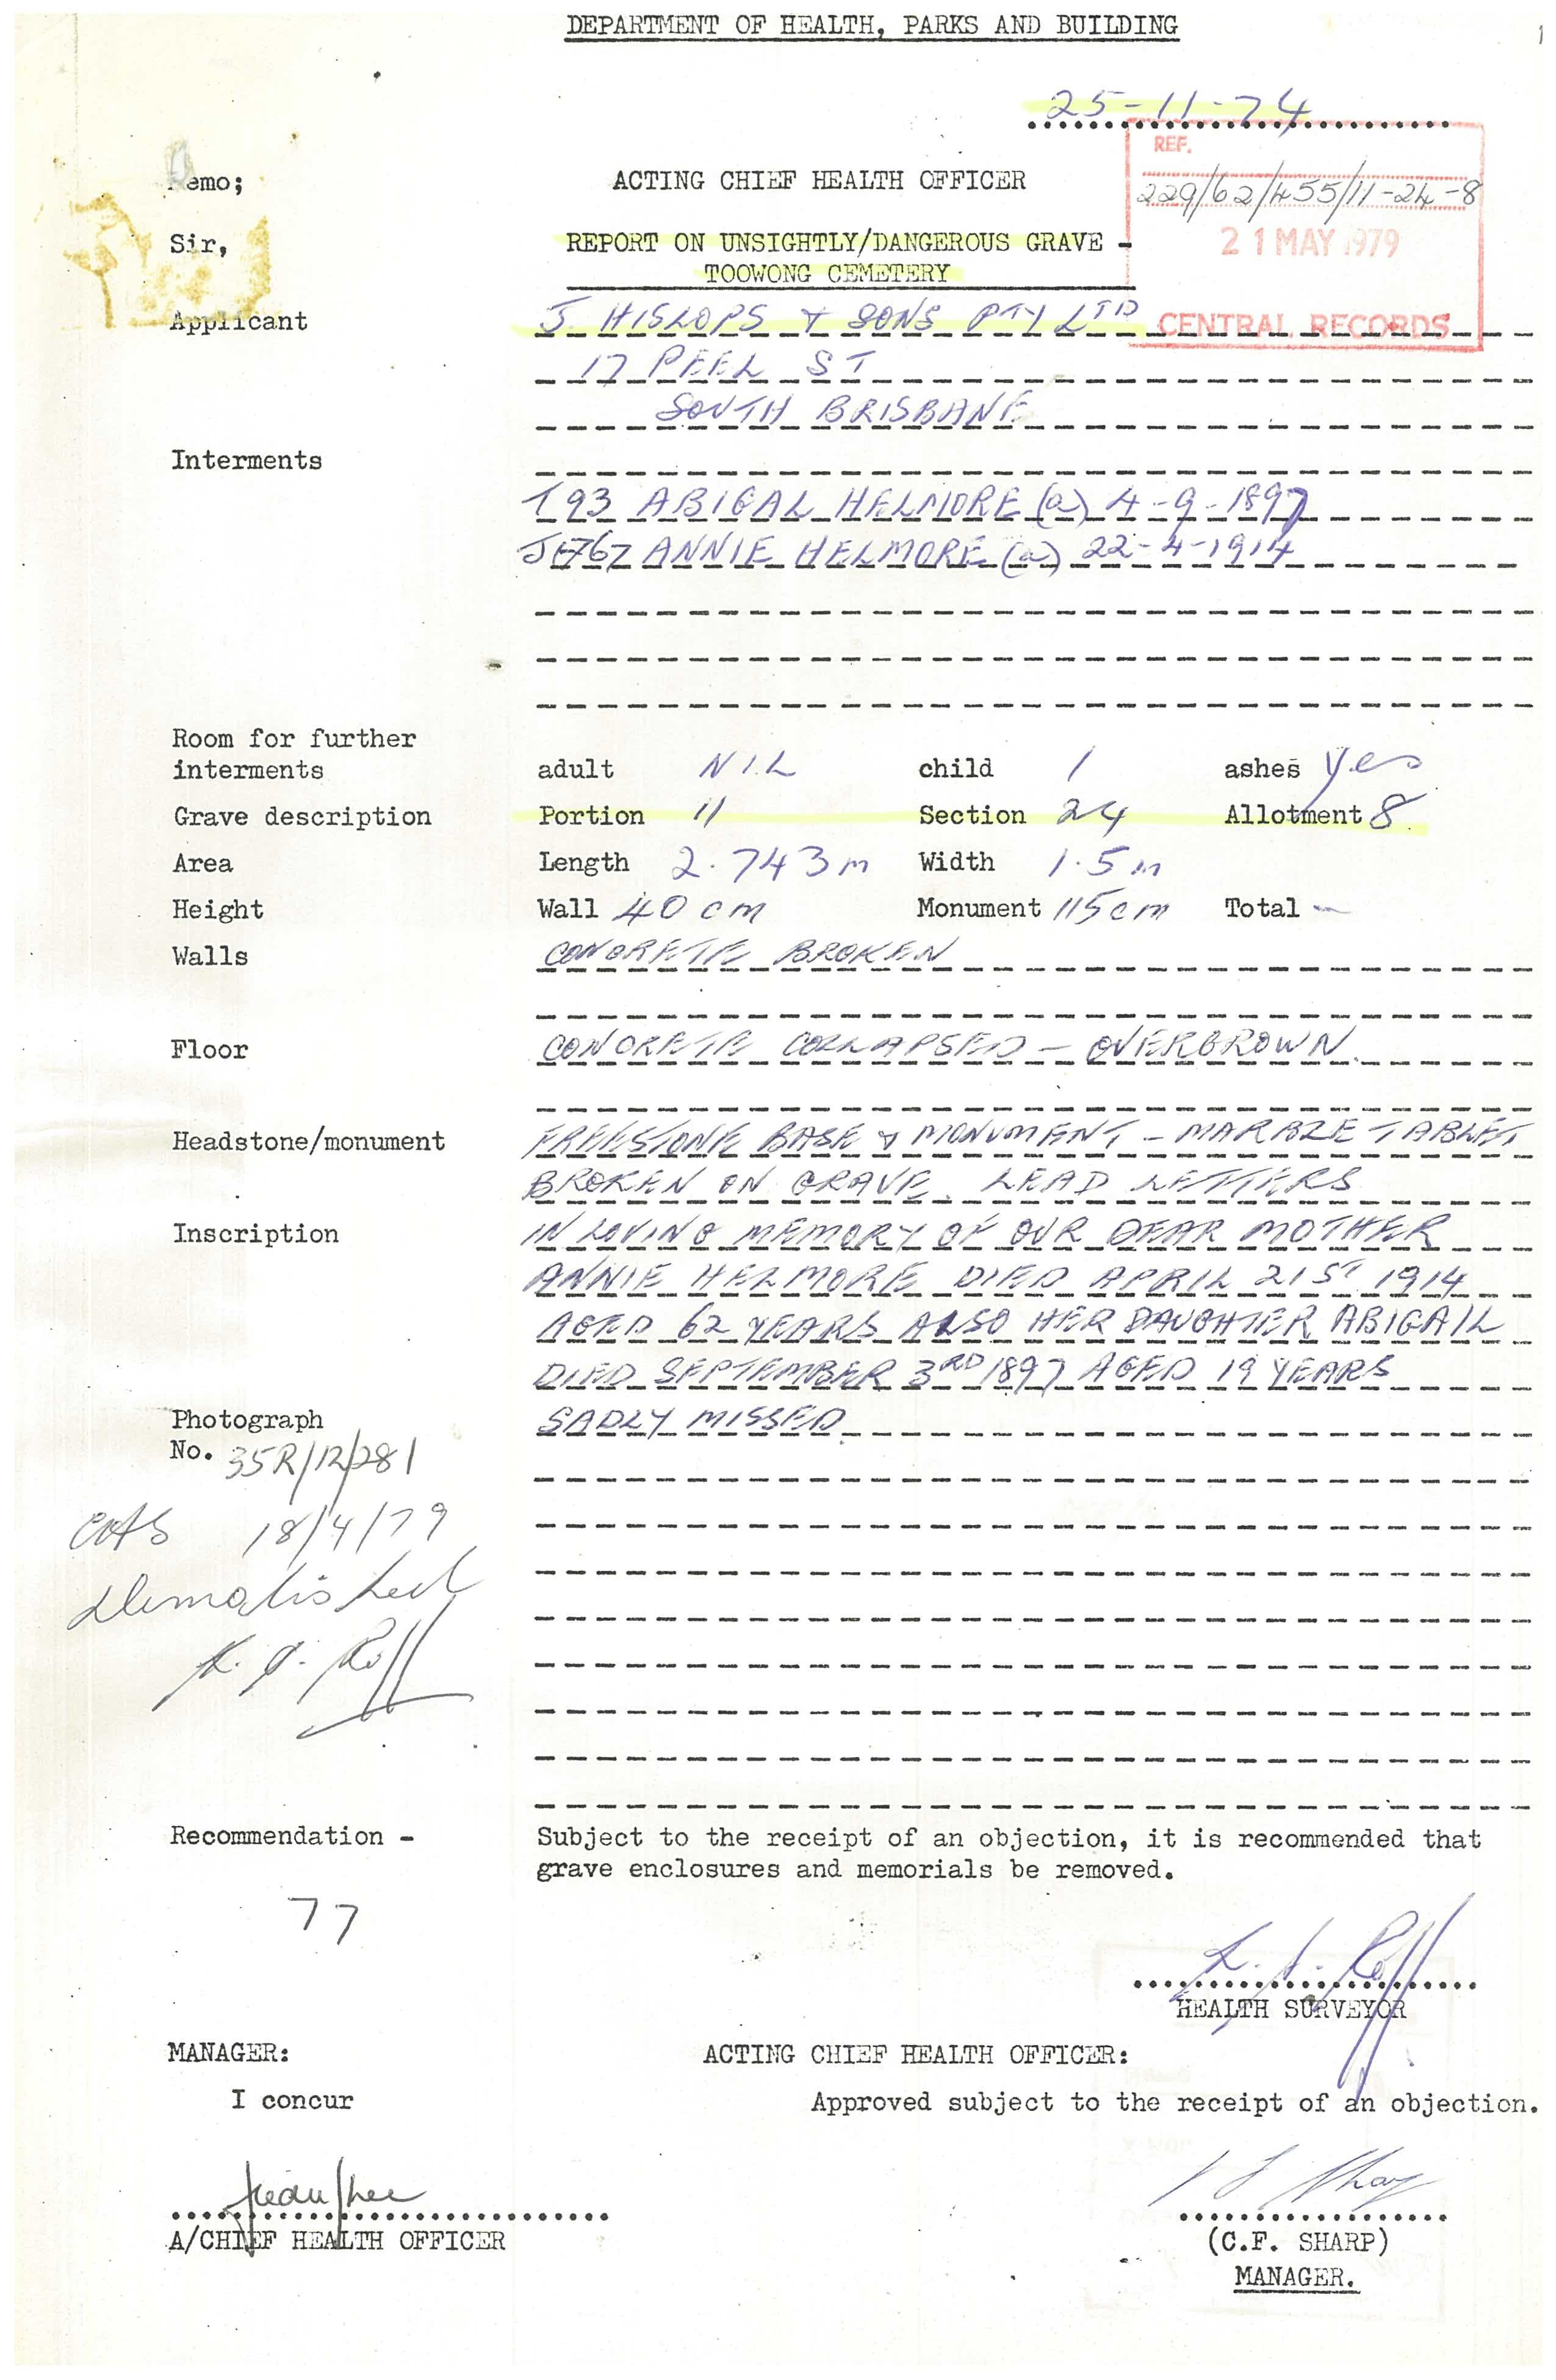 DEPARTMENT OF HEALTH, PARKS AND BUILDING
25-11-74
REF.
229/62/455/11-24-8
21 MAY 1979
CENTRAL RECORDS
emo;
ACTING CHIEF HEALTH OFFICER
Sir,
REPORT ON UNSIGHTLY/DANGEROUS GRAVE -
TOOWONG CEMETERY
Applicant J HISLOPS & SONS PTY LTD
17 PEEL ST
SOUTH BRISBANE
Interments
T93 ABIGAL HELMORE (a) 4-9-1897
ANNIE HELMORE (a) 22-4-1914
Room for further
interments adult NIL child 1 ashes yes
Grave description Portion 11 Section 24 Allotment 8
Area Length 2.743m Width 1.5m
Height Wall 40cm Monument 115cm Total -
Walls CONCRETE BROKEN
Floor CONCRETE COLLAPSED - OVERGROWN.
Headstone/monument FREESTONE BASE & MONUMENT - MARBLE TABLET
BROKEN ON GRAVE. LEAD LETTERS
Inscription IN LOVING MEMORY OF OUR DEAR MOTHER
ANNIE HELMORE DIED APRIL 21ST 1914
AGED 62 YEARS ALSO HER DAUGHTER ABIGAIL
DIED SEPTEMBER 3RD 1897 AGED 19 YEARS
SADLY MISSED
Photograph
No. 35R/12/281
18/4/79
Demolished
Recommendation - Subject to the receipt of an objection, it is recommended that
grave enclosures and memorials be removed.
77
HEALTH SURVEYOR
MANAGER: ACTING CHIEF HEALTH OFFICER:
I concur Approved subject to the receipt of an objection.
A/CHIEF HEALTH OFFICER
(C.F. SHARP)
MANAGER.